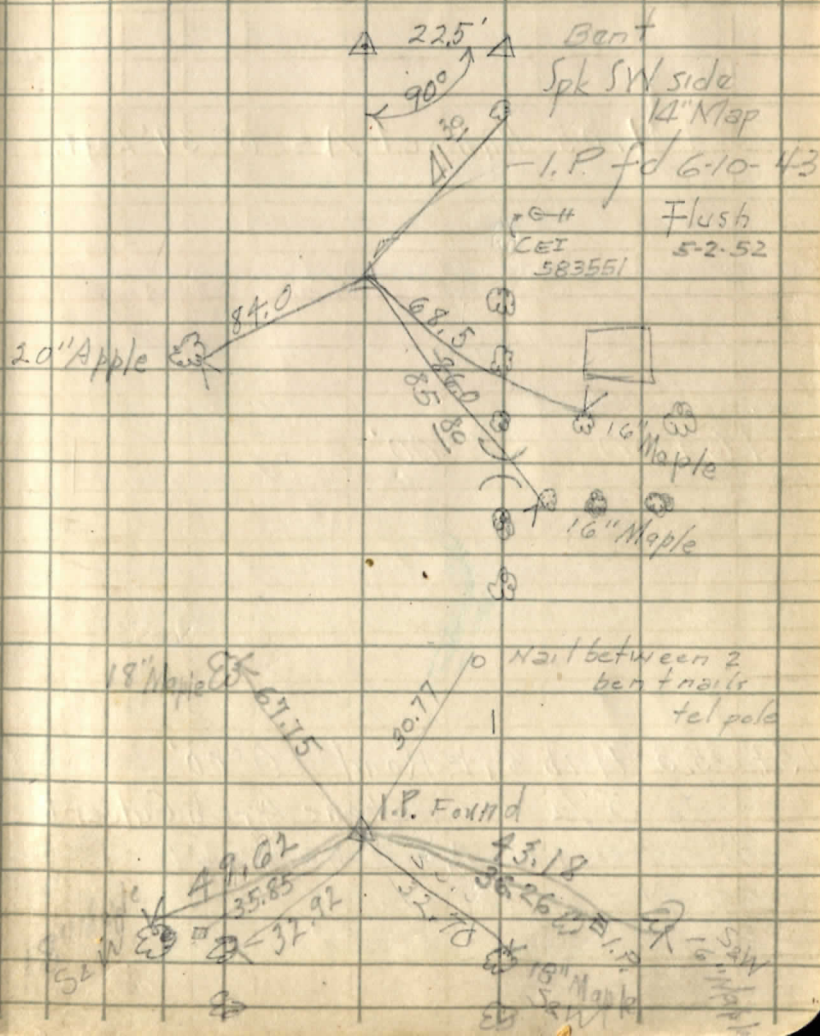 22.5'
Bent
90°
Spk SW side
14" Map
41.39
I.P. fd 6-10-43
Flush
5-2-52
CEI
583551
84.0
20" Apple
68.5
86.0
85.80
16" Maple
16" Maple
18" Maple
67.75
30.77
Nail between 2
bent nails
tel pole
I.P. Found
49.62
35.85
32.92
43.18
36.26
32.78
I.P.
S&W
S&W
16" Mapl
18" Maple
S&W